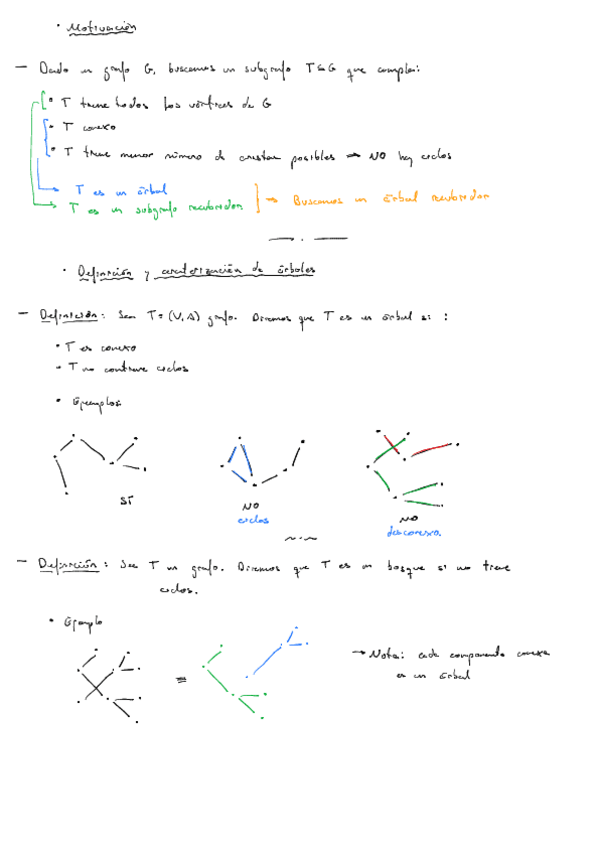 • Motivación
— Dado un grafo G, buscamos un subgrafo T⊆G que cumpla:
• T tiene todos los vértices de G
• T conexo
• T tiene menor número de aristas posibles → NO hay ciclos
→ T es un árbol
→ T es un subgrafo recubridor
→ Buscamos un árbol recubridor
• Definición y caracterización de árboles
— Definición: Sea T=(V,A) grafo. Diremos que T es un árbol si :
• T es conexo
• T no contiene ciclos
• Ejemplos:
SÍ
NO
ciclos
NO
desconexo.
— Definición: Sea T un grafo. Diremos que T es un bosque si no tiene
ciclos.
• Ejemplo
≡
→ Nota: cada componente conexa
es un árbol